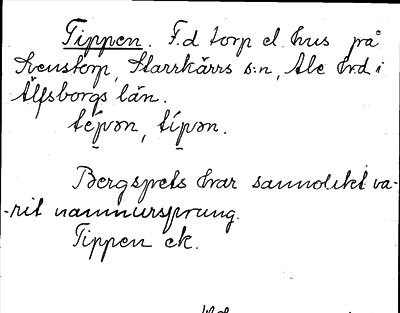 Tippen. F.d torp el. hus på
Svenstorp, Starrkärrs s:n, Ale hrd i
Älfsborgs län.
tépən, típən.
Bergspets har sannolikt va-
-rit namnursprung.
Tippen ek.